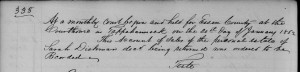 335
At a monthly Court begun and held for Essex County at the
Courthouse in Tappahannock on the 20th day of January 1862
This Account of Sales of the personal estate of
Sarah Dickman decd being returned was ordered to be
Recorded
Teste